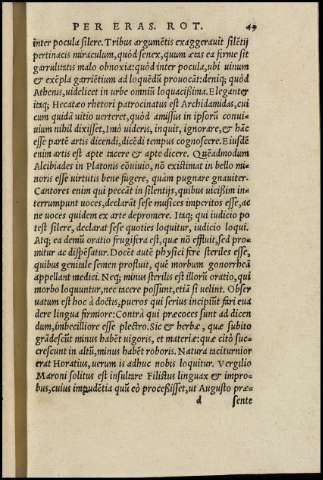 PER ERAS. ROT. 49
inter pocula silere. Tribus argumētis exaggerauit silētij
pertinacis miraculum, quòd senex, quum ætas ea ferme sit
garrulitatis malo obnoxia: quòd inter pocula, ubi uinum
& exēpla garriētium ad loquēdū prouocāt: deniq; quòd
Athenis, uidelicet in urbe omniū loquacissima. Eleganter
itaq; Hecatæo rhetori patrocinatus est Archidamidas, cui
cum quidā uitio uerteret, quòd amissus in ipsorū conui-
uium nihil dixisset, Imò uideris, inquit, ignorare, & hāc
esse partē artis dicendi, dicēdi tempus cognoscere. Eiusdē
enim artis est apte tacere & apte dicere. Quēadmodum
Alcibiades in Platonis cōuiuio, nō existimat in bello mi-
noris esse uirtutis bene fugere, quàm pugnare gnauiter.
Cantores enim qui peccāt in silentijs, quibus uicissim in-
terrumpunt uoces, declarāt sese musices imperitos esse, ac
ne uoces quidem ex arte depromere. Itaq; qui iudicio po-
test silere, declarat sese quoties loquitur, iudicio loqui.
Atq; ea demū oratio frugifera est, quæ nō effluit, sed pro-
mitur ac dispēsatur. Docēt autē physici ferè steriles esse,
quibus geniule semen profluit, quē morbum gonorrhœā
appellant medici. Neq; minus sterilis est illorū oratio, qui
morbo loquuntur, nec tacere possunt, etiā si uelint. Obser
uatum est hoc à doctis, pueros qui serius incipiūt fari eua
dere lingua firmiore: Contrà qui præcoces sunt ad dicen
dum, imbecilliore esse plectro. Sic & herbæ, quæ subito
grādescūt minus habēt uigoris, et materiæ: quæ citò suc-
crescunt in altū, minus habēt roboris. Natura taciturnior
erat Horatius, uerum is adhuc nobis loquitur. Vergilio
Maroni solitus est insultare Filistus linguax & impro-
bus, cuius impudētia quū eò processisset, ut Augusto præ-
d sente